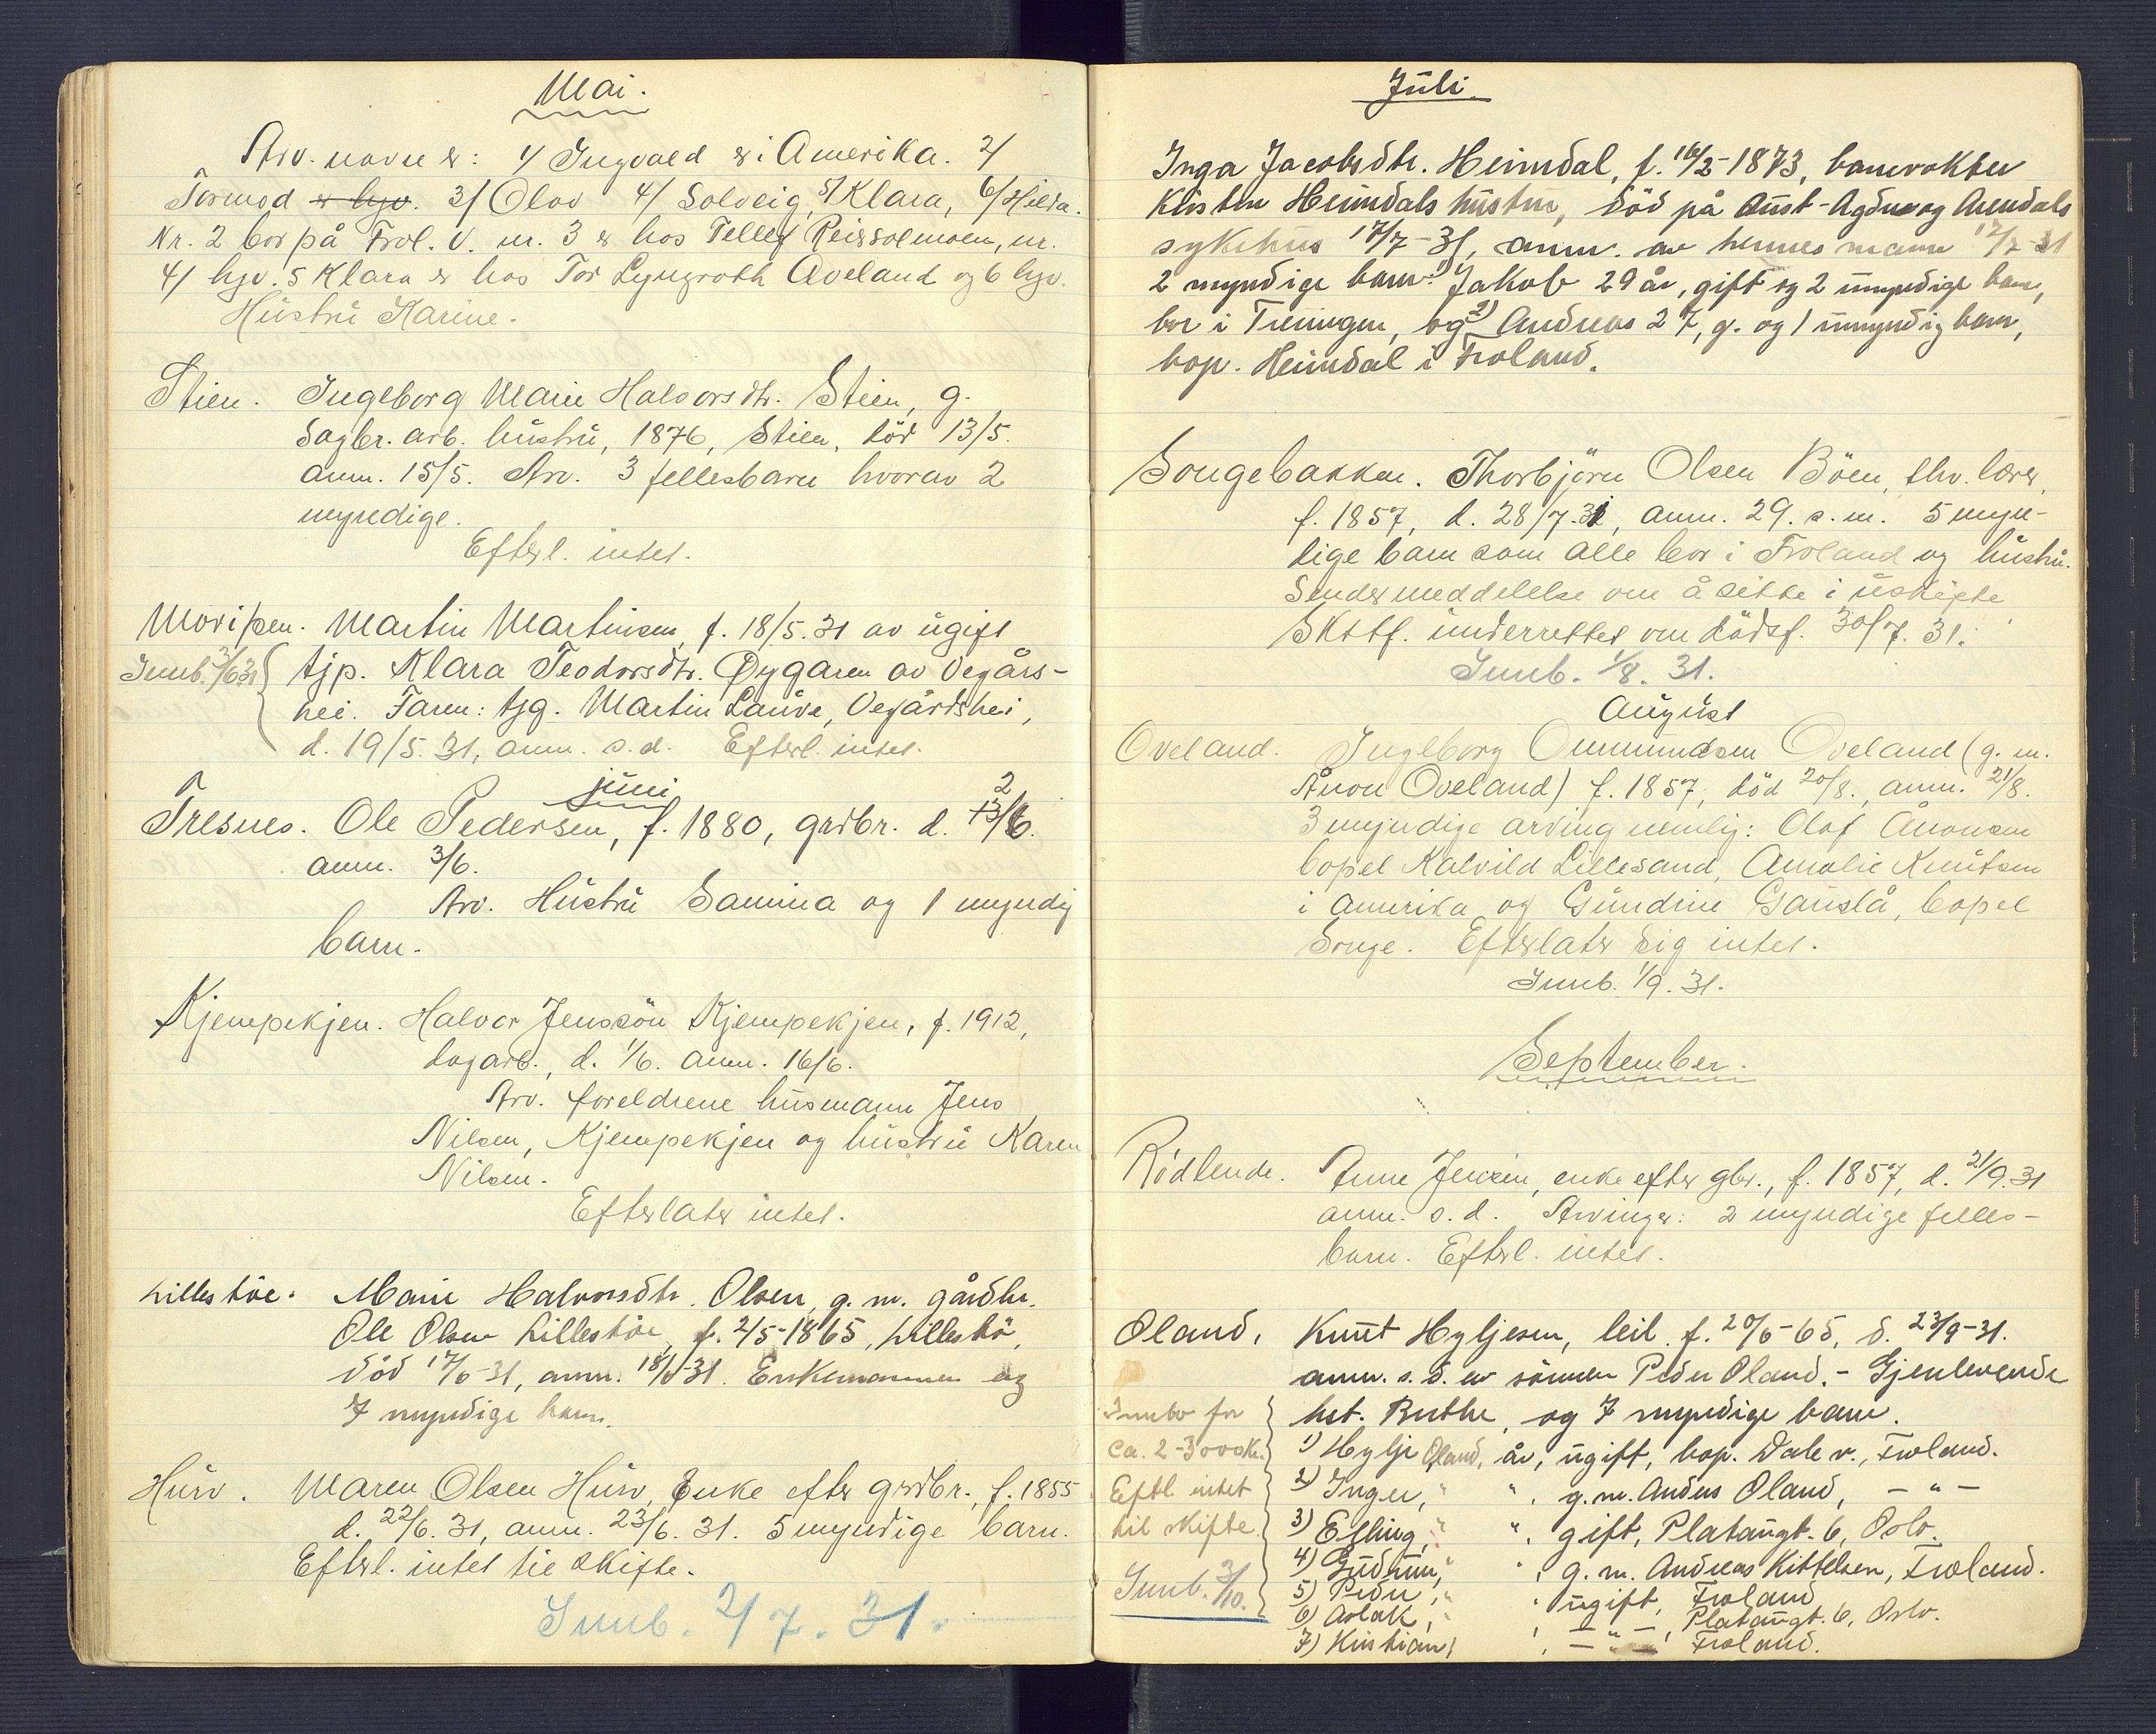 Mai.
Arv. navn er: 1/ Ingvald er i Amerika. 2/
Tormod er hjv. 3/ Olav 4/ Solveig, 5/ Klara, 6/ Hilda.
Nr. 2 bor på Frol. V. nr. 3 er hos Tellef Reiersølmoen, nr.
4/ hjv. 5 Klara er hos Tor Lyngroth Aveland og 6 hjv.
Hustru Karine.
Stien. Ingeborg Marie Halvorsdtr. Stien, g.
Sagbr. arb. hustru, 1876, Stien, død 13/5.
anm. 15/5. Arv. 3 fellesbarn hvorav 2
myndige.
Efterl. intet.
Mørifsen. Martin Martinsen, f. 18/5.31 av ugift
Innb. 3/6 31 tjp. Klara Teodorsdtr. Øygaren av Vegårs-
hei. Faren: tjg. Martin Lauve, Vegårdshei,
d. 19/5.31, anm. s.d. Efterl. intet.
juni
Tresnes. Ole Pedersen, f. 1880, grdbr. d. 13/6. 2
anm. 3/6.
Arv. Hustru Samina og 1 myndig
barn.
Kjempekjen. Halvor Jenssön Kjempekjen, f. 1912,
dagarb., d. 1/6. anm. 16/6.
Arv. foreldrene husmann Jens
Nilsen, Kjempekjen og hustru Karen
Nilsen.
Efterlater intet.
Lillestöe. Marie Halvorsdtr. Olsen, g. m. gårdbr.
Ole Olsen Lillestöe, f. 2/5-1865, Lillestö,
död 17/6-31, anm. 18/6-31. Enkemannen og
7 myndige barn.
Hurv. Maren Olsen Hurv, Enke efter grdbr., f. 1855
d. 22/6.31, anm. 23/6.31. 5 myndige barn.
Efterl. intet til skifte.
Innb. 2/7.31.
Juli
Inga Jacobsdtr. Heimdal, f. 16/2-1873, banevokter
Kristen Heimdals hustru, död på Aust-Agder og Arendals
sykehus 17/7-31, anm. av hennes mann 17/7-31
2 myndige barn: 1) Jakob 29 år, gift og 2 umyndige barn,
bor i Treungen, og 2) Andreas 27, g. og 1 umyndig barn,
bop. Heimdal i Froland.
Songebakken. Thorbjörn Olsen Böen, fhv. lærer,
f. 1857, d. 28/7.31, anm. 29. s.m. 5 myn-
dige barn som alle bor i Froland og hustru.
Sender meddelelse om å sitte i uskifte
Skttf. underrettet om dödsf. 30/7.31.
Innb. 1/8.31.
August
Oveland. Ingeborg Ommundsen Oveland (g. m.
Ånon Oveland) f. 1857, död 20/8., anm. 21/8.
3 myndige arving nemlig: Olaf Ånonsen
bopel Kalvild Lillesand, Amalie Knutsen
i Amerika og Gundine Gauslå, bopel
Songe. Efterlater sig intet.
Innb. 1/9.31.
September.
Rödlende. Anne Jensen, enke efter gbr., f. 1857, d. 21/9.31
anm. s.d. Arvinger: 2 myndige felles-
barn. Efterl. intet.
Oland, Knut Hyljesen, leil. f. 20/6-65, d. 23/9-31.
anm. s.d. av sönnen Peder Oland. - Gjenlevende
Innbo for hst. Berthe, og 7 myndige barn.
ca. 2-300 ok. 1) Hylje Oland, år, ugift, bop. Dale v., Froland.
Eftl. intet 2) Inger, " ". g.m. Anders Oland, - " -
til skifte. 3) Erling, " ". gift, Platougt. 6, Oslo.
Innb. 3/10. 4) Gudrun, " , g. m. Andreas Kittelsen, Froland.
5) Peder, " , ugift, Froland
6) Aslak, " , - " -, Platougt. 6, Oslo.
7) Kristian, , - " - Froland.